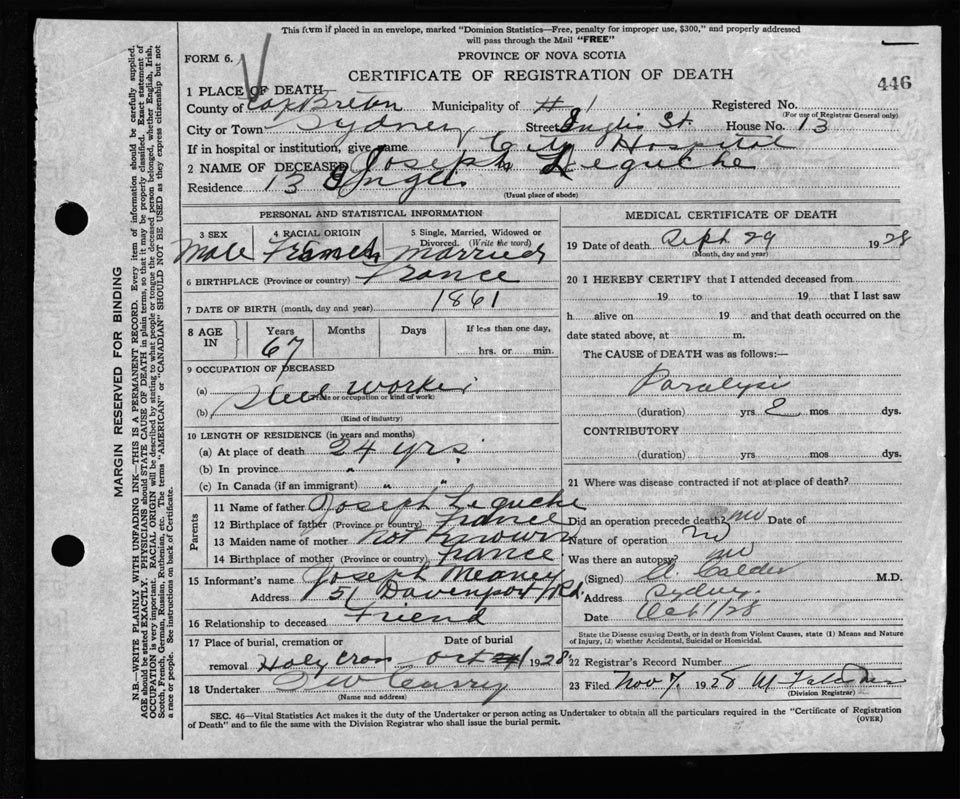 This form if placed in an envelope, marked "Dominion Statistics—Free, penalty for improper use, $300," and properly addressed
will pass through the Mail "FREE"
FORM 6.
PROVINCE OF NOVA SCOTIA
CERTIFICATE OF REGISTRATION OF DEATH
446
1 PLACE OF DEATH
County of Cap Breton Municipality of # 1 Registered No.
(For use of Registrar General only)
City or Town Sydney Street Inglis St. House No. 13
If in hospital or institution, give name City Hospital
2 NAME OF DECEASED Joseph Leguche
Residence 13 Inglis
(Usual place of abode)
PERSONAL AND STATISTICAL INFORMATION
3 SEX 4 RACIAL ORIGIN 5 Single, Married, Widowed or Divorced. (Write the word)
Male French Married
6 BIRTHPLACE (Province or country) France
7 DATE OF BIRTH (month, day and year) 1861
8 AGE IN Years Months Days If less than one day,
67 hrs. or min.
9 OCCUPATION OF DECEASED
(a) Steel worker
(Trade or occupation or kind of work)
(b)
(Kind of industry)
10 LENGTH OF RESIDENCE (in years and months)
(a) At place of death 24 yrs.
(b) In province "
(c) In Canada (if an immigrant) " "
Parents
11 Name of father Joseph Leguche
12 Birthplace of father (Province or country) France
13 Maiden name of mother not known
14 Birthplace of mother (Province or country) France
15 Informant's name Joseph Meaney
Address 51 Davenport Rd.
16 Relationship to deceased Friend
17 Place of burial, cremation or removal Holy Cross Date of burial Oct 1 1928
18 Undertaker
(Name and address)
MEDICAL CERTIFICATE OF DEATH
19 Date of death Sept 29 1928
(Month, day and year)
20 I HEREBY CERTIFY that I attended deceased from
19 to 19 that I last saw
h alive on 19 and that death occurred on the
date stated above, at m.
The CAUSE OF DEATH was as follows:—
Paralysis
(duration) yrs 2 mos dys.
CONTRIBUTORY
(duration) yrs. mos. dys.
21 Where was disease contracted if not at place of death?
Did an operation precede death? no Date of
Nature of operation no
Was there an autopsy? no
(Signed) A. Calder M.D.
Address Sydney.
Date Oct 1/28
State the Disease causing Death, or in death from Violent Causes, state (1) Means and Nature
of Injury, (2) whether Accidental, Suicidal or Homicidal.
22 Registrar's Record Number
23 Filed Nov 7, 1928
(Division Registrar)
SEC. 46—Vital Statistics Act makes it the duty of the Undertaker or person acting as Undertaker to obtain all the particulars required in the "Certificate of Registration
of Death" and to file the same with the Division Registrar who shall issue the burial permit.
(OVER)
MARGIN RESERVED FOR BINDING
N.B.—WRITE PLAINLY WITH UNFADING INK—THIS IS A PERMANENT RECORD. Every item of information should be carefully supplied.
AGE should be stated EXACTLY. PHYSICIANS should STATE CAUSE OF DEATH in plain terms, so that it may be properly classified. Exact statement of
OCCUPATION is very important. RACIAL ORIGIN will be described by stating to what people or tongue the deceased person belonged, whether English, Irish,
Scotch, French, German, Russian, Ruthenian, etc. The terms "AMERICAN" or "CANADIAN" SHOULD NOT BE USED as they express citizenship but not
a race or people. See instructions on back of Certificate.